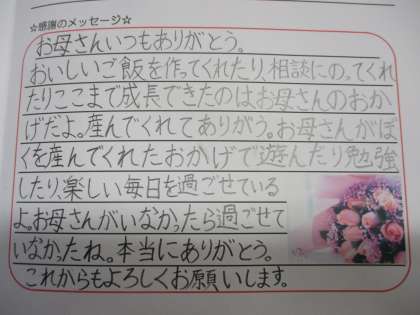 ☆感謝のメッセージ☆
お母さんいつもありがとう。
おいしいご飯を作ってくれたり、相談にのってくれ
たりここまで成長できたのはお母さんのおか
げだよ。産んでくれてありがう。お母さんがぼ
くを産んでくれたおかげで遊んだり勉強
したり、楽しい毎日を過ごせている
よ。お母さんがいなかったら過ごせて
いなかったね。本当にありがとう。
これからもよろしくお願いします。